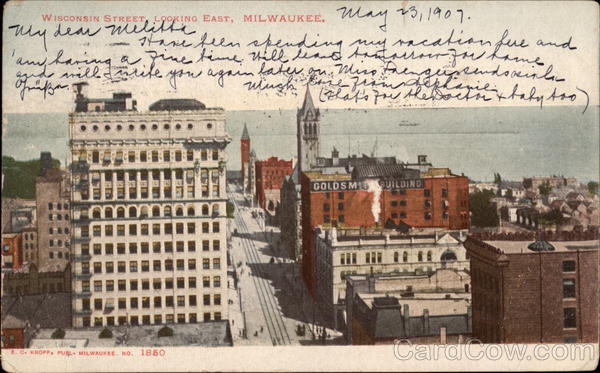 WISCONSIN STREET, LOOKING EAST, MILWAUKEE.
May 23, 1907.
My dear Melitta
Have been spending my vacation here and
am having a fine time. Will leave tomorrow for home
and will write you again later on. Miss sends viele
Grüsse. Much love from Stephanie
(That's for the Doctor & baby too)
GOLDSMITH BUILDING
E. C. KROPP, PUBL. MILWAUKEE. NO. 1850
CardCow.com